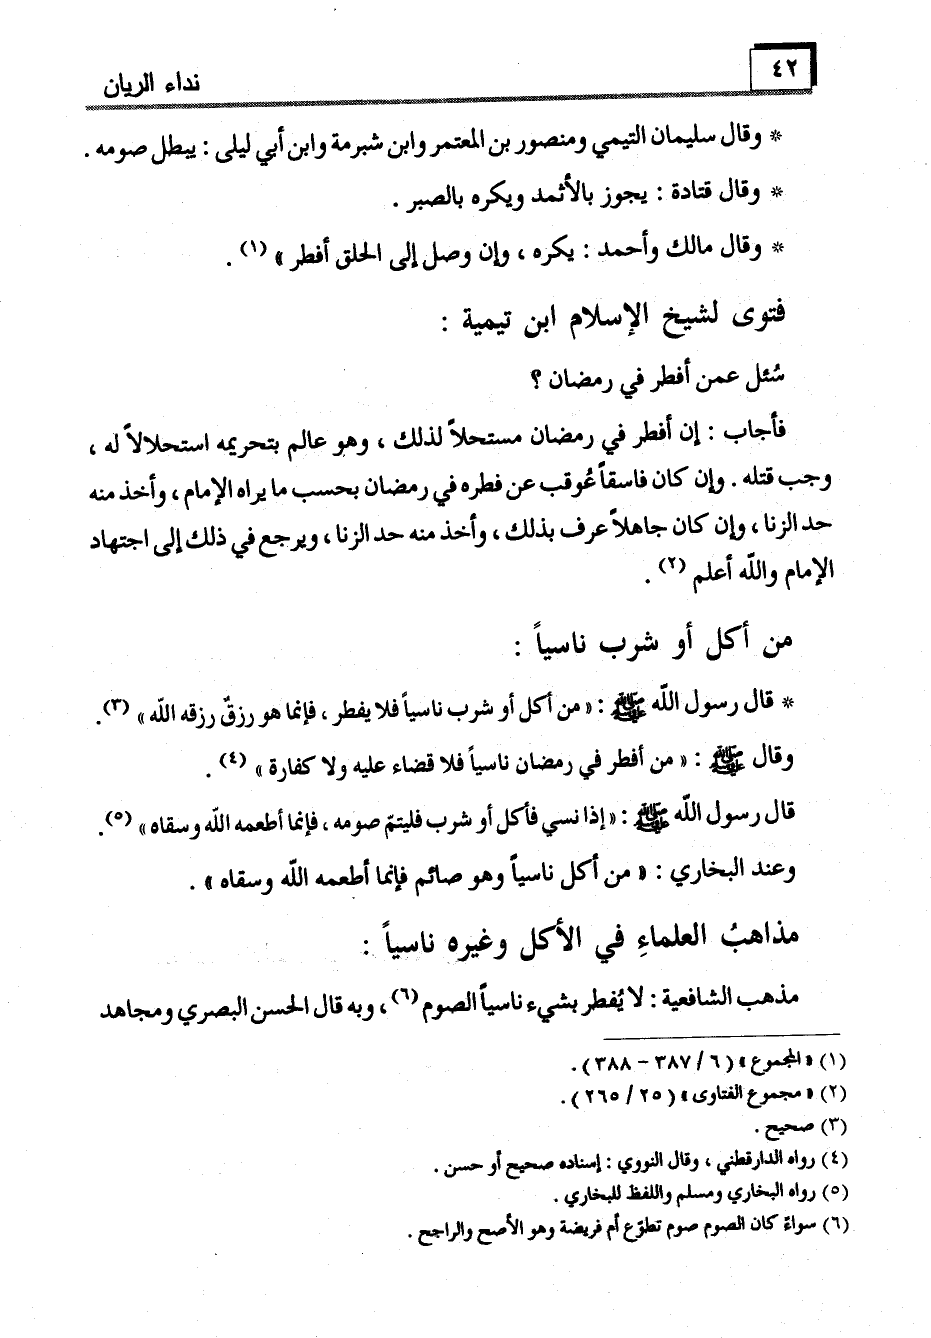 ٤٢
نداء الريان
* وقال سليمان التيمي ومنصور بن المعتمر وابن شبرمة وابن أبي ليلى : يبطل صومه .
* وقال قتادة : يجوز بالأثمد ويكره بالصبر .
* وقال مالك وأحمد : يكره ، وإن وصل إلى الحلق أفطر » (١) .
فتوى لشيخ الإسلام ابن تيمية :
سُئل عمن أفطر في رمضان ؟
فأجاب : إن أفطر في رمضان مستحلاً لذلك ، وهو عالم بتحريمه استحلالاً له ،
وجب قتله . وإن كان فاسقاً عُوقب عن فطره في رمضان بحسب ما يراه الإمام ، وأخذ منه
حد الزنا ، وإن كان جاهلاً عرف بذلك ، وأخذ منه حد الزنا ، ويرجع في ذلك إلى اجتهاد
الإمام واللّه أعلم (٢) .
من أكل أو شرب ناسياً :
* قال رسول اللّه ﷺ : « من أكل أو شرب ناسياً فلا يفطر ، فإنما هو رزقٌ رزقه اللّه » (٣).
وقال ﷺ : « من أفطر في رمضان ناسياً فلا قضاء عليه ولا كفارة » (٤) .
قال رسول اللّه ﷺ : « إذا نسي فأكل أو شرب فليتمّ صومه ، فإنما أطعمه اللّه وسقاه » (٥).
وعند البخاري : « من أكل ناسياً وهو صائم فإنما أطعمه اللّه وسقاه » .
مذاهبُ العلماءِ في الأكل وغيره ناسياً :
مذهب الشافعية : لا يُفطر بشيء ناسياً الصوم (٦) ، وبه قال الحسن البصري ومجاهد
(١) « المجموع » ( ٦ / ٣٨٧ – ٣٨٨ ) .
(٢) « مجموع الفتاوى » ( ٢٥ / ٢٦٥ ) .
(٣) صحيح .
(٤) رواه الدارقطني ، وقال النووي : إسناده صحيح أو حسن .
(٥) رواه البخاري ومسلم واللفظ للبخاري .
(٦) سواءً كان الصوم صوم تطوّع أم فريضة وهو الأصح والراجح .